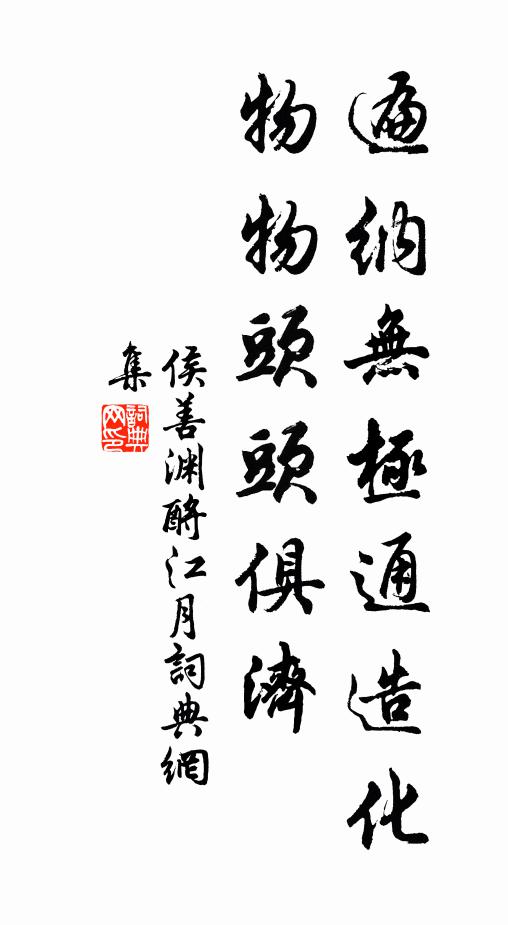 遍納無極通造化
物物頭頭俱濟
侯善淵酹江月詞典網
集
詞典
網印